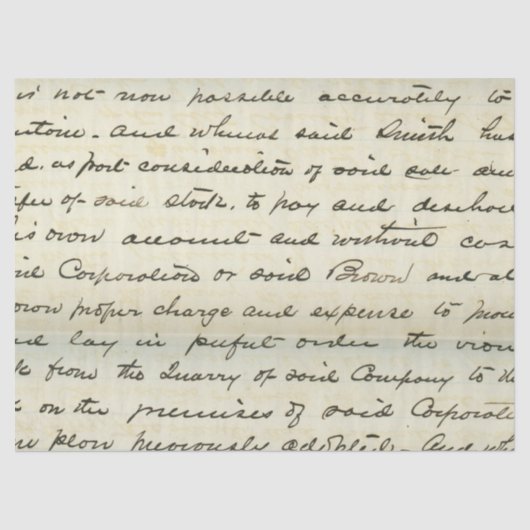 is not now possible accurately to
And whereas said Smith has
as part consideration of said sale an
of said stock, to pay and discha
his own account and without cos
Corporation or said Brown and at
own proper charge and expense to
lay in perfect order the
from the Quarry of said Company to th
on the premises of said Corporati
plan previously adopted - And wh